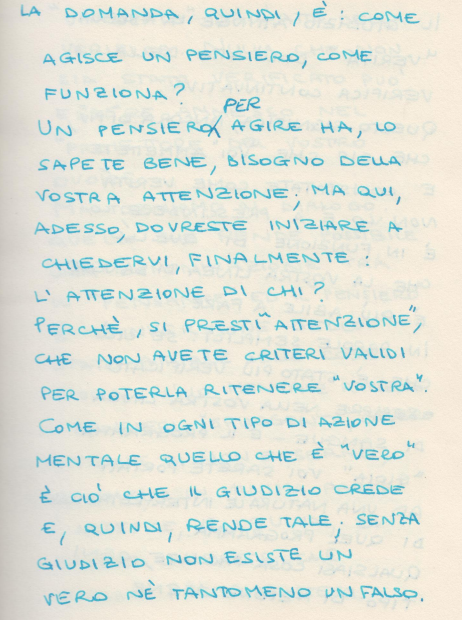 LA DOMANDA, QUINDI, È: COME
AGISCE UN PENSIERO, COME
FUNZIONA?
PER
UN PENSIERO AGIRE HA, LO
SAPETE BENE, BISOGNO DELLA
VOSTRA ATTENZIONE. MA QUI,
ADESSO, DOVRESTE INIZIARE A
CHIEDERVI, FINALMENTE:
L'ATTENZIONE DI CHI?
PERCHÈ, SI PRESTI "ATTENZIONE",
CHE NON AVETE CRITERI VALIDI
PER POTERLA RITENERE "VOSTRA".
COME IN OGNI TIPO DI AZIONE
MENTALE QUELLO CHE È "VERO"
È CIÒ CHE IL GIUDIZIO CREDE
E, QUINDI, RENDE TALE. SENZA
GIUDIZIO NON ESISTE UN
VERO NÈ TANTOMENO UN FALSO.